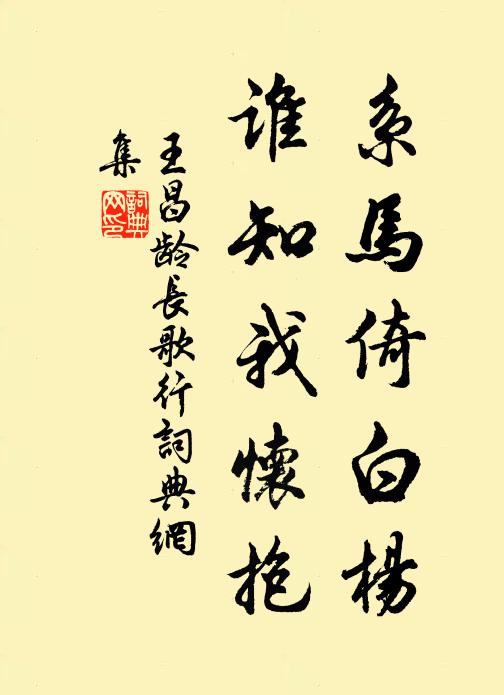 系馬倚白楊
誰知我懷抱
王昌龄長歌行詞典網
集
詞典网印